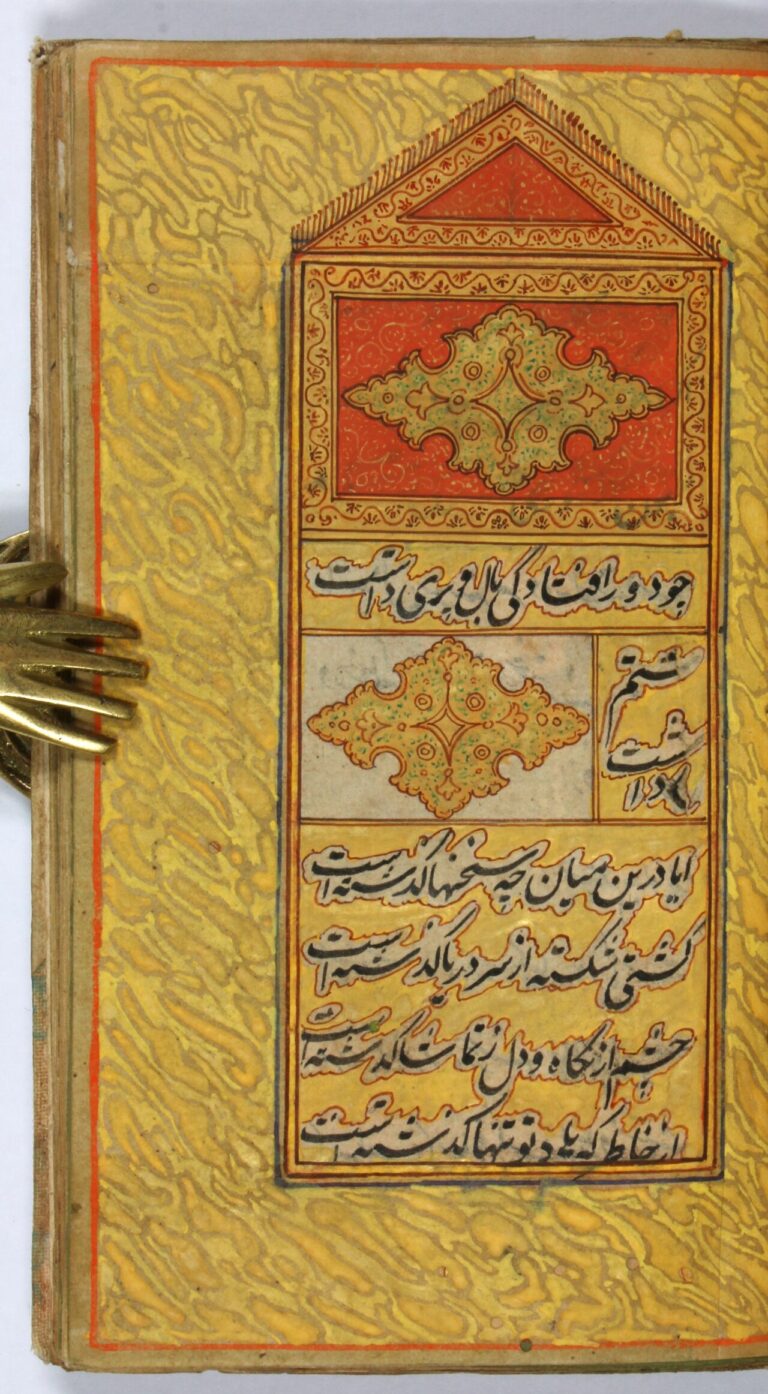 چو دور افتادگی بال و پری داشت
شتم
داشت
ایا درین میان چه سخنها گذشته است
کشتی شکسته از سر دریا گذشته است
چشم از نگاه و دل ز تماشا گذشته است
از خاطر که یاد تو تنها گذشته است